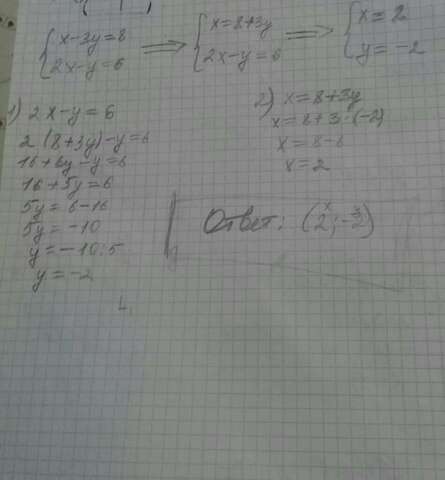 { x-3y=8 ⟹ { x=8+3y ⟹ { x=2
2x-y=6 2x-y=6 y=-2
1) 2x-y=6
2(8+3y)-y=6
16+6y-y=6
16+5y=6
5y=6-16
5y=-10
y=-10:5
y=-2
2) x=8+3y
x=8+3·(-2)
x=8-6
x=2
Ответ: (2;-2)